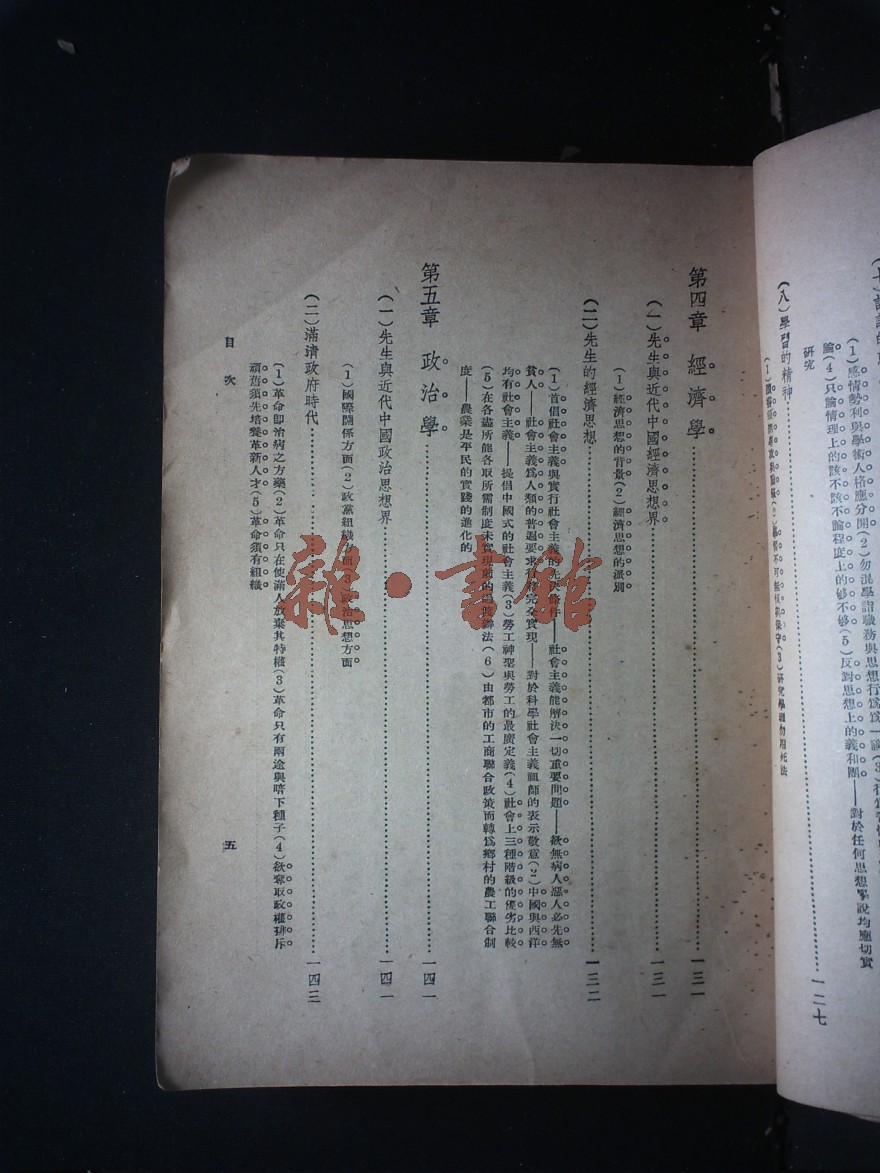 (1)感情勢利與學術人格應分開(2)勿混學
論(4)只論情理上的該不該不論程度上的够不够(5)反對思想上的義和團——對於任何思想學說均應切實
研究
(八)學習的精神……一二七
第四章 經濟學……一三一
(一)先生與近代中國經濟思想界……一三一
(1)經濟思想的背景(2)經濟思想的派別
(二)先生的經濟思想……一三二
(1)首倡社會主義與實行社會主義的先決條件——社會主義能解決一切重要問題——欲無病人惡人必先無
貧人——社會主義爲人類的普遍要求 完全實現——對於科學社會主義祖師的表示敬意(2)中國與西洋
均有社會主義——提倡中國式的社會主義(3)勞工神聖與勞工的最廣定義(4)社會上三種階級的優劣比較
(5)在各盡所能各取所需制度未實現 的 辦法(6)由都市的工商聯合政策而轉爲鄉村的農工聯合制
度——農業是平民的實踐的進化的
第五章 政治學……一四一
(一)先生與近代中國政治思想界……一四一
(1)國際關係方面(2)政黨組織方面(3)政治思想方面
(二)滿清政府時代……一四三
(1)革命即治病之方藥(2)革命只在使滿人放棄其特權(3)革命只有兩途與暗下種子(4)欲奪取政權排斥
頑舊須先培養革新人才(5)革命須有組織
目次
五
雜·書館